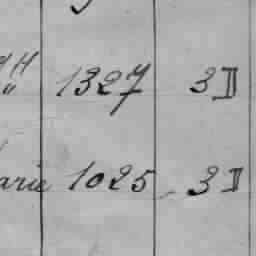 1327 3 II
1025 3 II